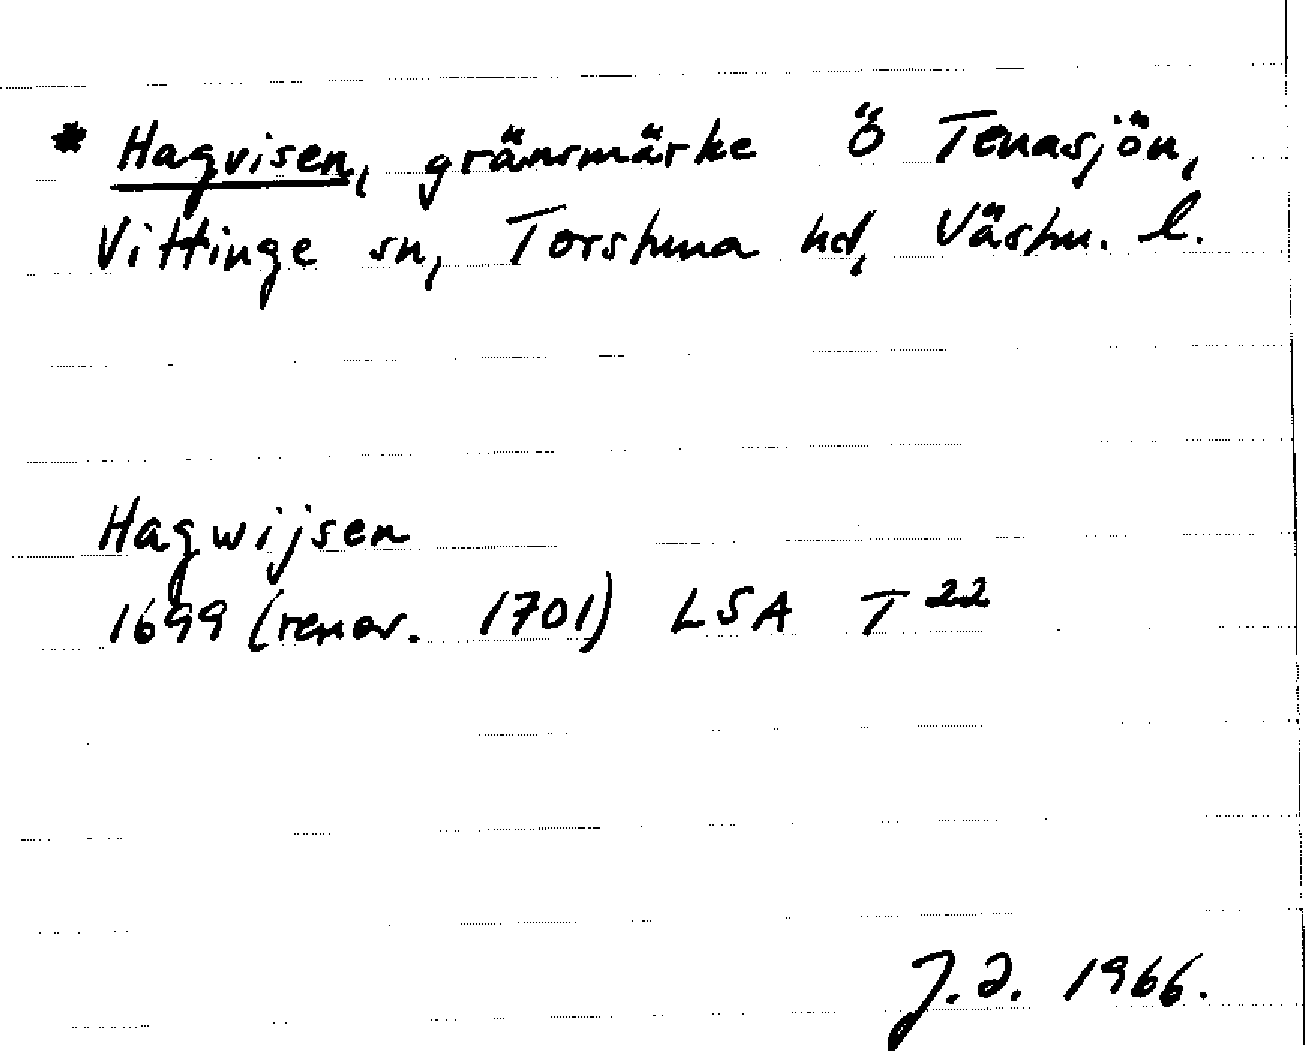 * Hagvisen, gränsmärke Ö Tenasjön,
Vittinge sn, Torstuna hd, Västm. l.
Hagwijsen
1699 (renov. 1701) LSA T 22
J.Ö. 1966.